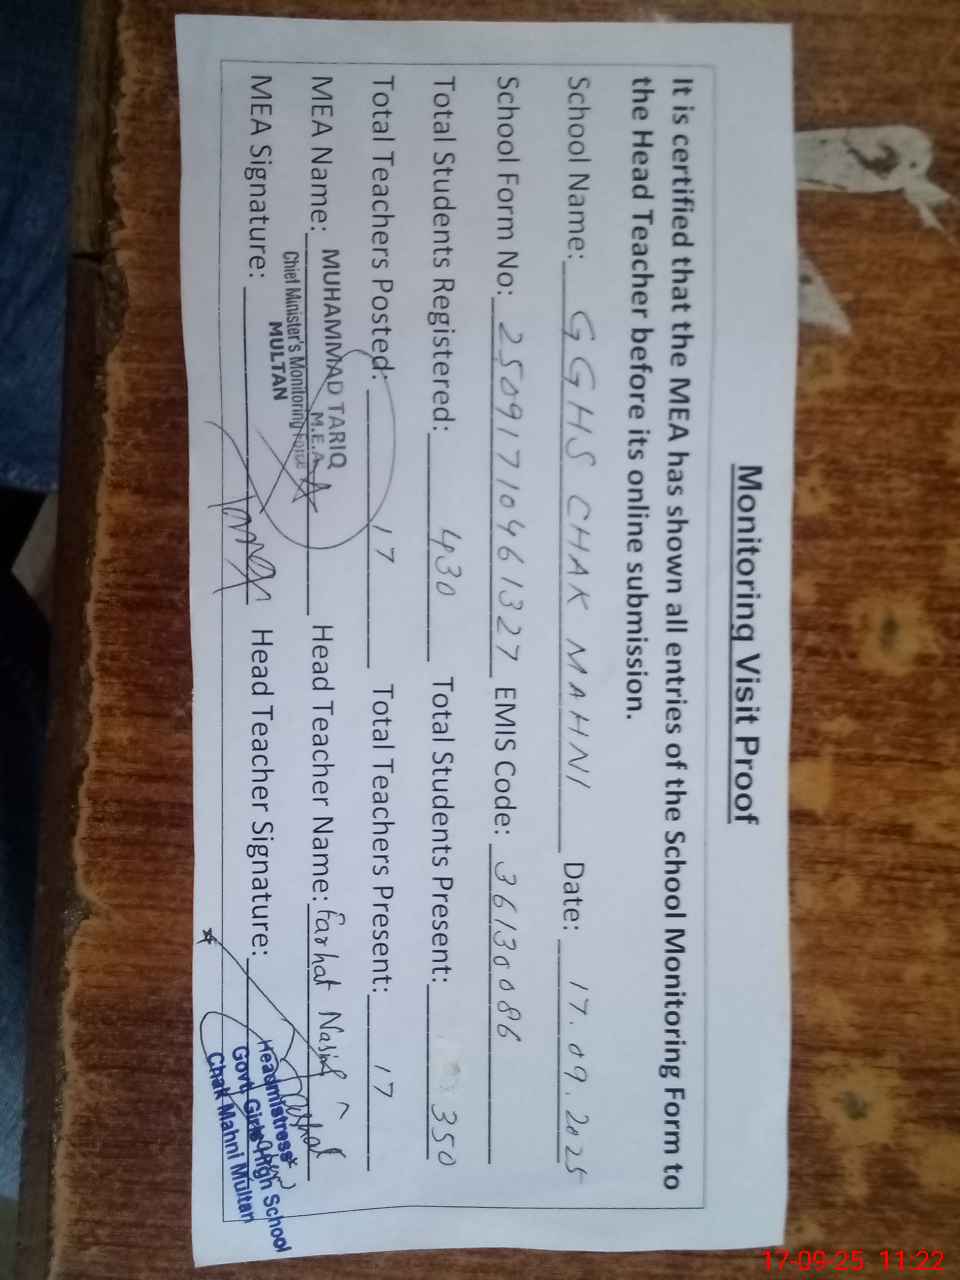 Monitoring Visit Proof
It is certified that the MEA has shown all entries of the School Monitoring Form to
the Head Teacher before its online submission.
School Name: GGHS CHAK MAHNI Date: 17.09.2025
School Form No: 25091710461327 EMIS Code: 36130086
Total Students Registered: 430 Total Students Present: 350
Total Teachers Posted: 17 Total Teachers Present: 17
MEA Name: MUHAMMAD TARIQ Head Teacher Name: Farhat Nasim
M.E.A
Chief Minister's Monitoring Force
MULTAN
MEA Signature: Head Teacher Signature:
Headmistress
Govt. Girls High School
Chak Mahni Multan
17-09-25 11:22